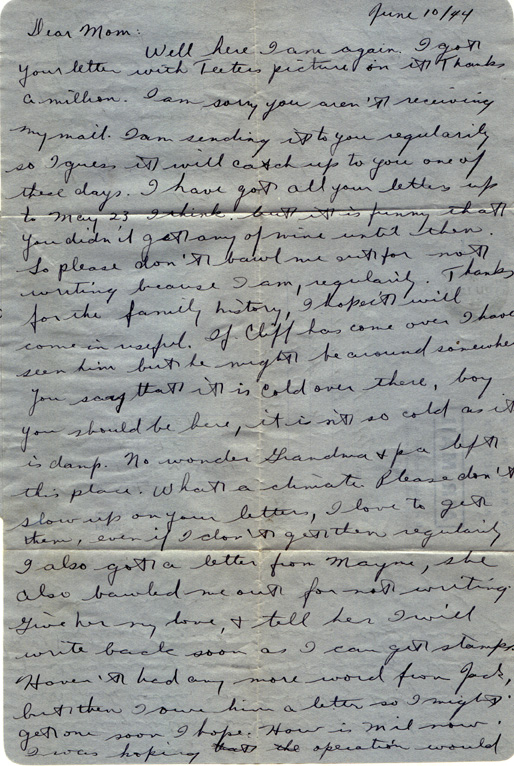 June 10/44
Dear Mom:
Well here I am again. I got
your letter with Teeters picture on it Thanks
a million. I am sorry you aren't receiving
my mail. I am sending it to you regularily
so I guess it will catch up to you one of
these days. I have got all your letters up
to May 23 I think. but it is funny that
you didn't get any of mine until then.
So please don't bawl me out for not
writing because I am, regularily. Thanks
for the family history, I hope it will
come in useful. If Cliff has come over I have
seen him but he might be around somewhe
You say that it is cold over there, boy
you should be here, it isn't so cold as it
is damp. No wonder Grandma & pa left
this place. What a climate. Please don't
slow up on your letters, I love to get
them, even if I don't get them regularily
I also got a letter from Mayne, she
also bawled me out for not writing.
Give her my love, & tell her I will
write back soon as I can get stamps.
Haven't had any more word from Jack,
but then I owe him a letter so I might
get one soon I hope. How is Mil now.
I was hoping that the operation would